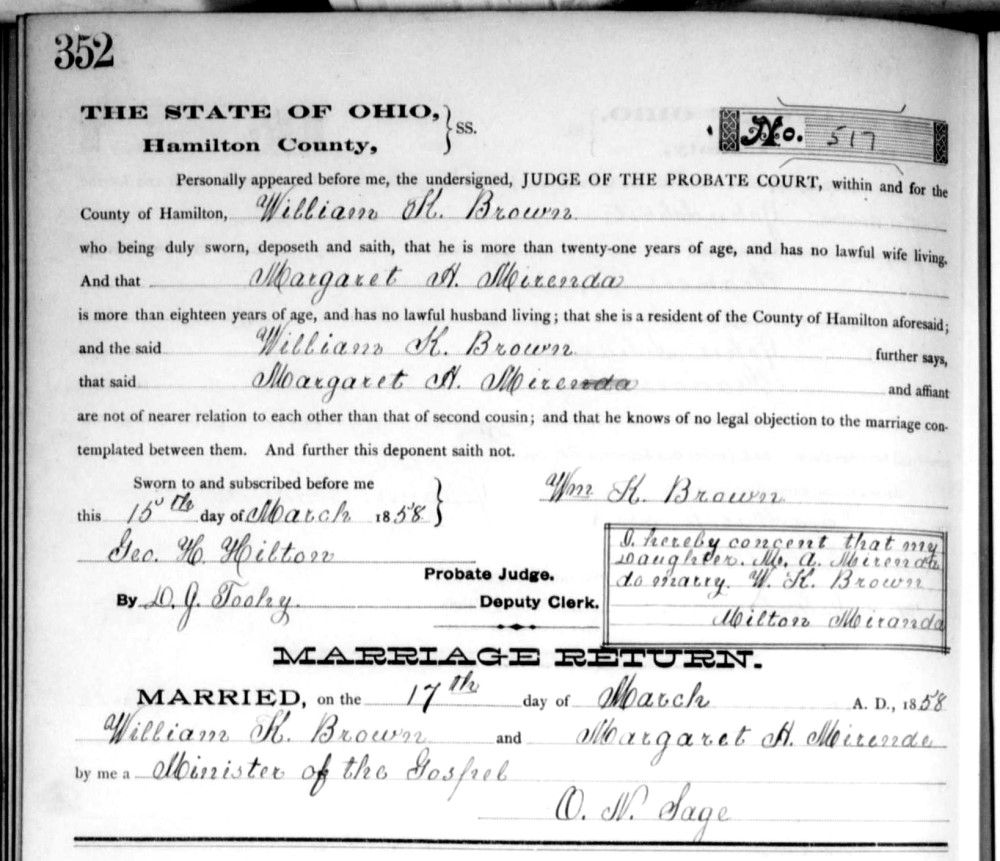 352
THE STATE OF OHIO, } SS.
Hamilton County,
No. 517
Personally appeared before me, the undersigned, JUDGE OF THE PROBATE COURT, within and for the
County of Hamilton, William K. Brown
who being duly sworn, deposeth and saith, that he is more than twenty-one years of age, and has no lawful wife living.
And that Margaret A. Mirenda
is more than eighteen years of age, and has no lawful husband living; that she is a resident of the County of Hamilton aforesaid;
and the said William K. Brown further says,
that said Margaret A. Mirenda and affiant
are not of nearer relation to each other than that of second cousin; and that he knows of no legal objection to the marriage con-
templated between them. And further this deponent saith not.
Sworn to and subscribed before me
this 15th day of March 1858 }
Wm K. Brown
Geo. H. Hilton
Probate Judge.
By D. J. Toohy. Deputy Clerk.
I hereby concent that my
Daughter. M. A. Mirenda
do marry. W. K. Brown
Milton Miranda
MARRIAGE RETURN.
MARRIED, on the 17th day of March A. D., 1858
William K. Brown and Margaret A. Mirende
by me a Minister of the Gospel
O. N. Sage